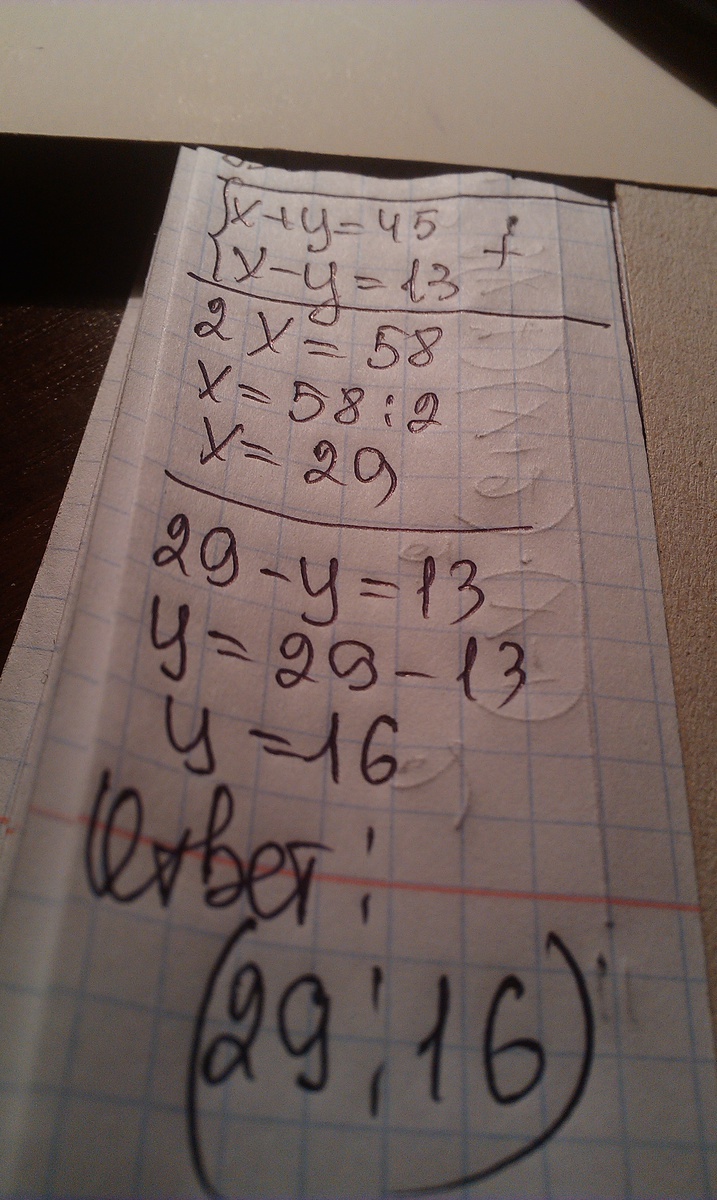 {x+y=45 +
{x-y=13
2x=58
x=58:2
x=29
29-y=13
y=29-13
y=16
Ответ:
(29;16)